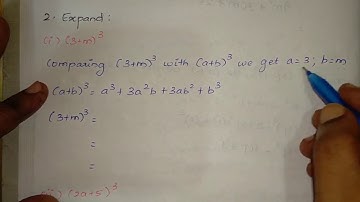 2. Expand:
(i) (3+m)³
Comparing (3+m)³ with (a+b)³ we get a=3; b=m
(a+b)³ = a³ + 3a²b + 3ab² + b³
(3+m)³ =
=
=
(2a+5)³